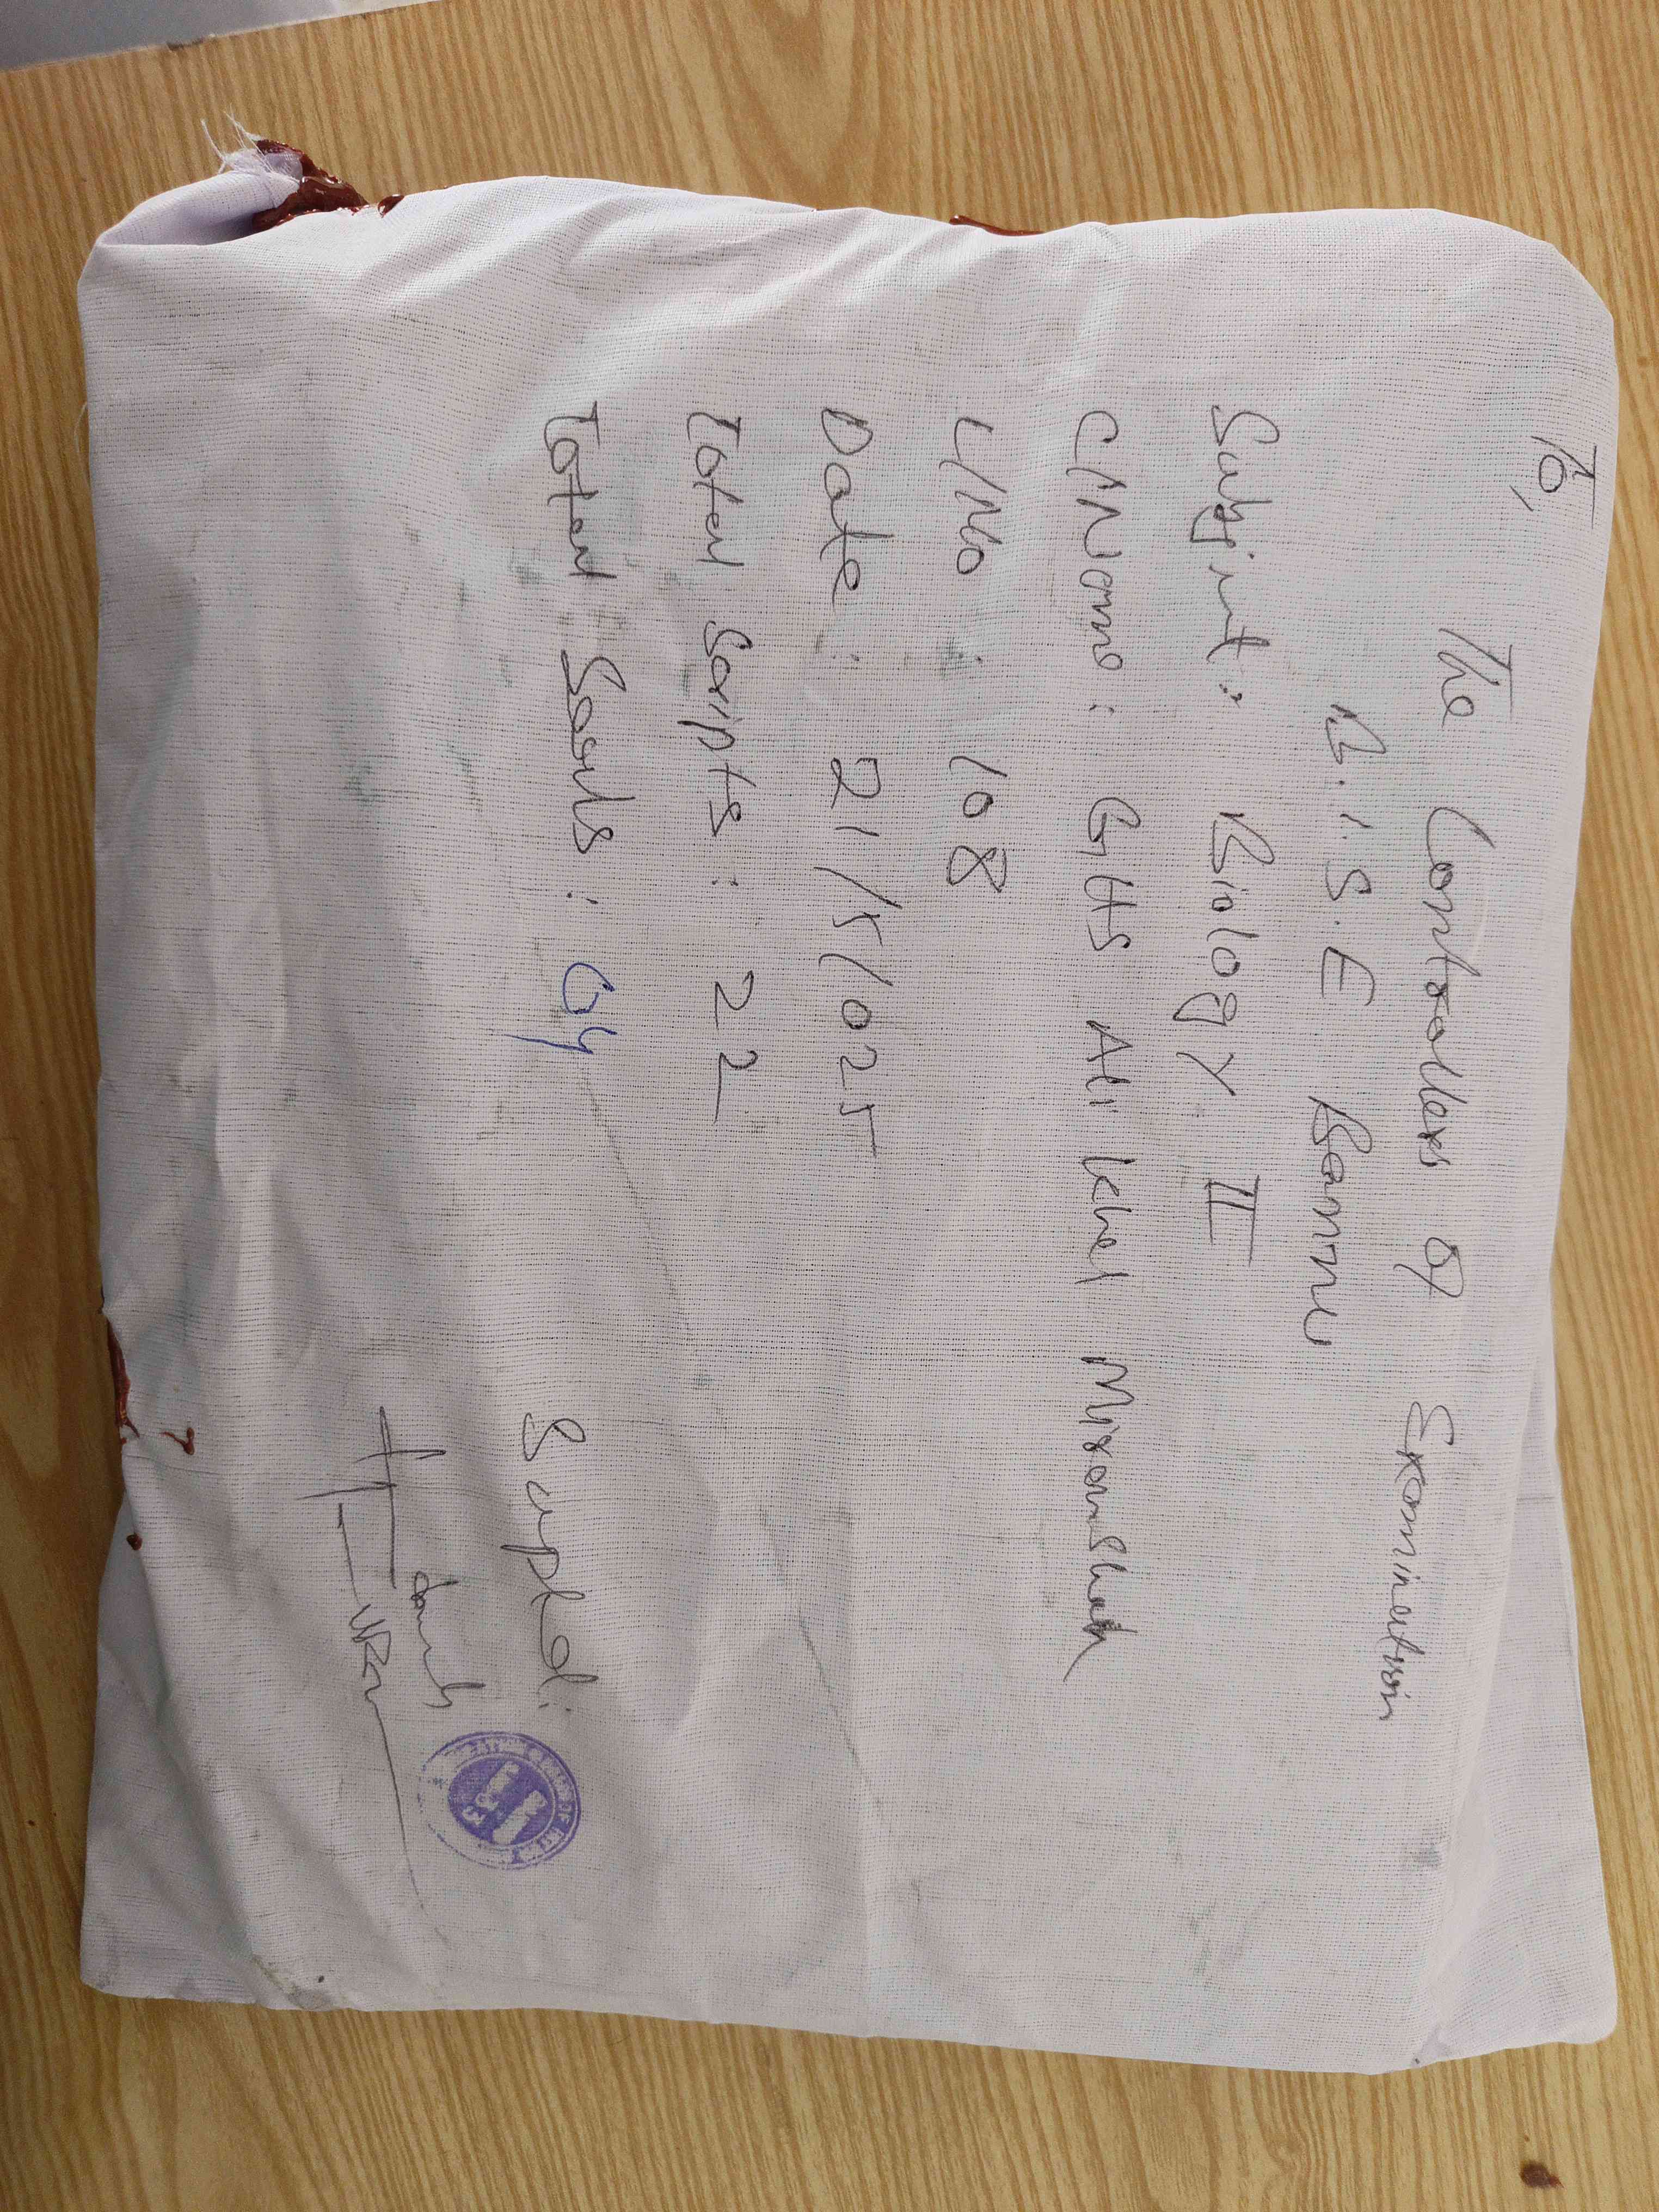 To,
The Controllers of Examination
B.I.S.E Bannu
Subject: Biology II
C/Name: GHS Ali Khel Miramshah
C/No: 108
Date: 21/5/025
Total Scripts: 22
Total Seals: 04
Suptd: